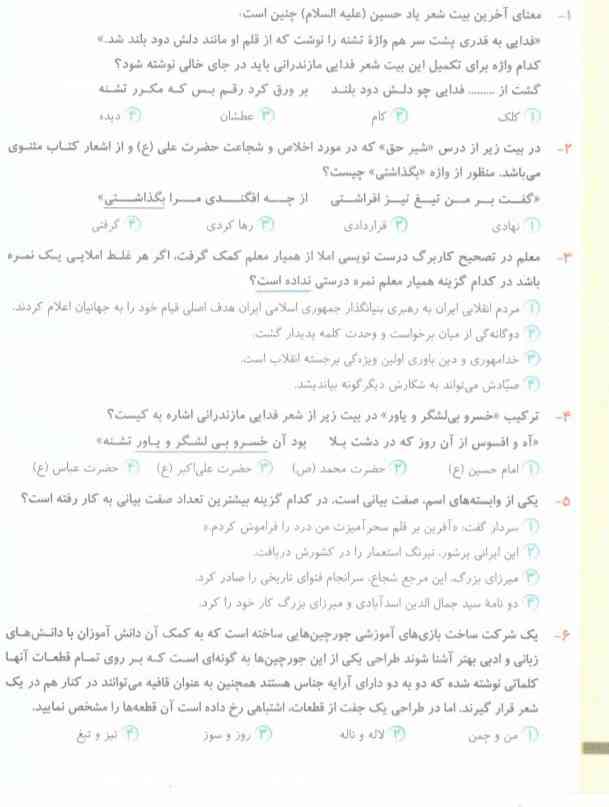 ۱- معنای آخرین بیت شعر یاد حسین (علیه السلام) چنین است:
«فدایی به قدری پشت سر هم واژهٔ تشنه را نوشت که از قلم او مانند دلش دود بلند شد.»
کدام واژه برای تکمیل این بیت شعر فدایی مازندرانی باید در جای خالی نوشته شود؟
گشت از ......... فدایی چو دلش دود بلند بر ورق کرد رقم بس که مکرر تشنه
۱ کلک ۲ کام ۳ عطشان ۴ دیده
۲- در بیت زیر از درس «شیر حق» که در مورد اخلاص و شجاعت حضرت علی (ع) و از اشعار کتاب مثنوی
می‌باشد. منظور از واژه «بگذاشتی» چیست؟
«گفت بر من تیغ تیز افراشتی از چه افگندی مرا بگذاشتی»
۱ نهادی ۲ قراردادی ۳ رها کردی ۴ گرفتی
۳- معلم در تصحیح کاربرگ درست نویسی املا از همیار معلم کمک گرفت، اگر هر غلط املایی یک نمره
باشد در کدام گزینه همیار معلم نمره درستی نداده است؟
۱ مردم انقلابی ایران به رهبری بنیانگذار جمهوری اسلامی ایران هدف اصلی قیام خود را به جهانیان اعلام کردند.
۲ دوگانه‌گی از میان برخواست و وحدت کلمه پدیدار گشت.
۳ خدامهوری و دین باوری اولین ویژه‌گی برجسته انقلاب است.
۴ صیّادش می‌تواند به شکارش دیگرگونه بیاندیشد.
۴- ترکیب «خسرو بی‌لشگر و یاور» در بیت زیر از شعر فدایی مازندرانی اشاره به کیست؟
«آه و افسوس از آن روز که در دشت بلا بود آن خسرو بی لشگر و یاور تشنه»
۱ امام حسین (ع) ۲ حضرت محمد (ص) ۳ حضرت علی‌اکبر (ع) ۴ حضرت عباس (ع)
۵- یکی از وابسته‌های اسم، صفت بیانی است. در کدام گزینه بیشترین تعداد صفت بیانی به کار رفته است؟
۱ سردار گفت: «آفرین بر قلم سحرآمیزت من درد را فراموش کردم.»
۲ این ایرانی پرشور، نیرنگ استعمار را در کشورش دریافت.
۳ میرزای بزرگ، این مرجع شجاع، سرانجام فتوای تاریخی را صادر کرد.
۴ دو نامهٔ سید جمال الدین اسدآبادی و میرزای بزرگ کار خود را کرد.
۶- یک شرکت ساخت بازی‌های آموزشی جورچین‌هایی ساخته است که به کمک آن دانش آموزان با دانش‌های
زبانی و ادبی بهتر آشنا شوند طراحی یکی از این جورچین‌ها به گونه‌ای است که بر روی تمام قطعات آنها
کلماتی نوشته شده که دو به دو دارای آرایه جناس هستند همچنین به عنوان قافیه می‌توانند در کنار هم در یک
شعر قرار گیرند، اما در طراحی یک جفت از قطعات، اشتباهی رخ داده است آن قطعه‌ها را مشخص نمایید.
۱ من و چمن ۲ لاله و ناله ۳ روز و سوز ۴ تیز و تیغ